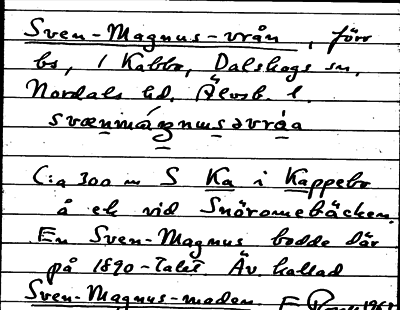 Sven-Magnus-vrån, förr
bs, i Kabbo, Dalskogs sn,
Nordals hd, Älvsb. l.
svænmáგnusəvråa
C:a 300 m S Ka i Kappebo
å ek vid Snöromebäcken.
En Sven-Magnus bodde där
på 1890-talet Äv. kallad
Sven-Magnus-maden.